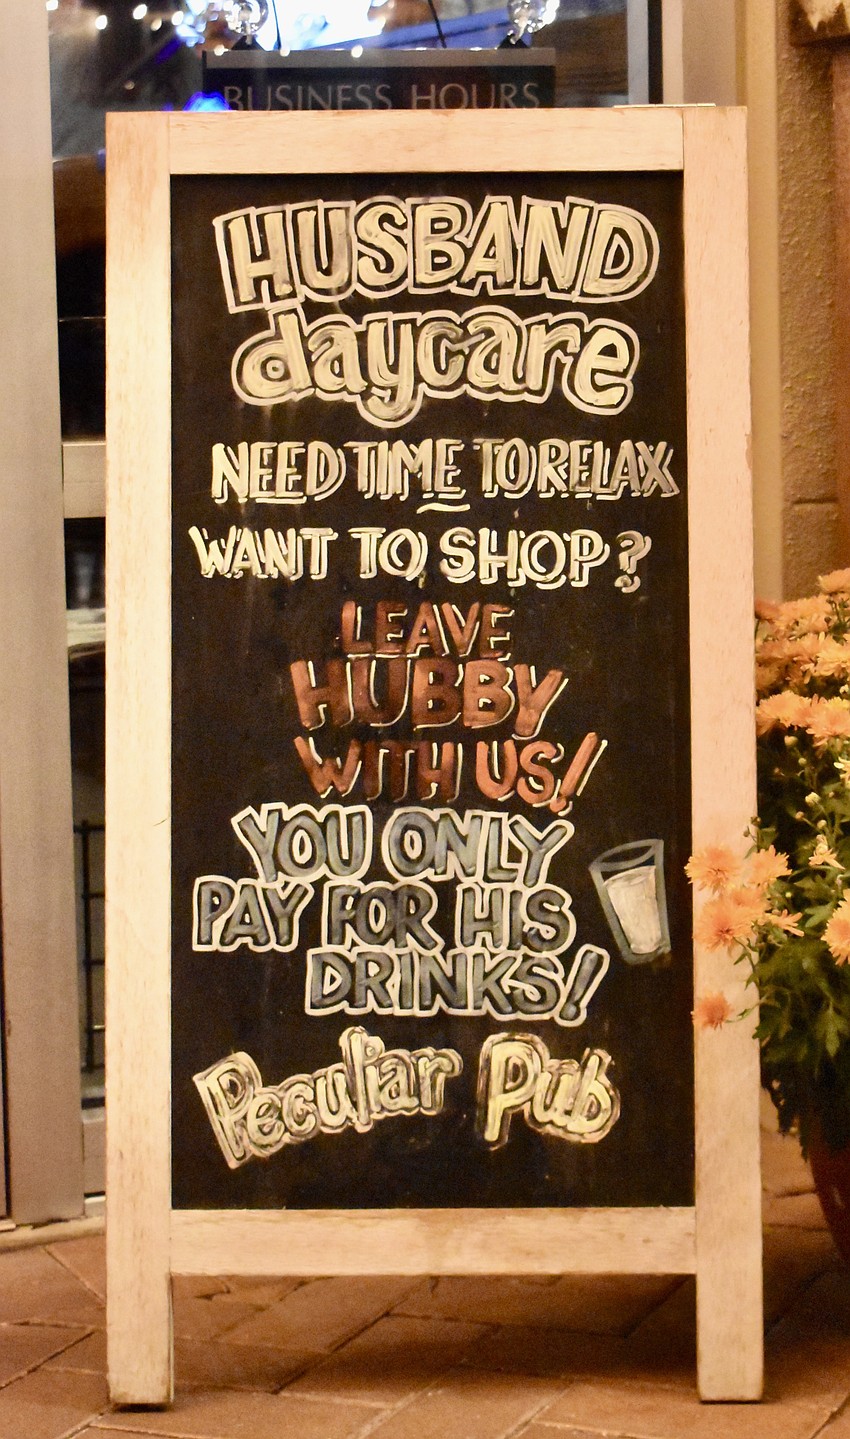 BUSINESS HOURS
HUSBAND
daycare
NEED TIME TO RELAX
WANT TO SHOP?
LEAVE
HUBBY
WITH US!
YOU ONLY
PAY FOR HIS
DRINKS!
Peculiar Pub